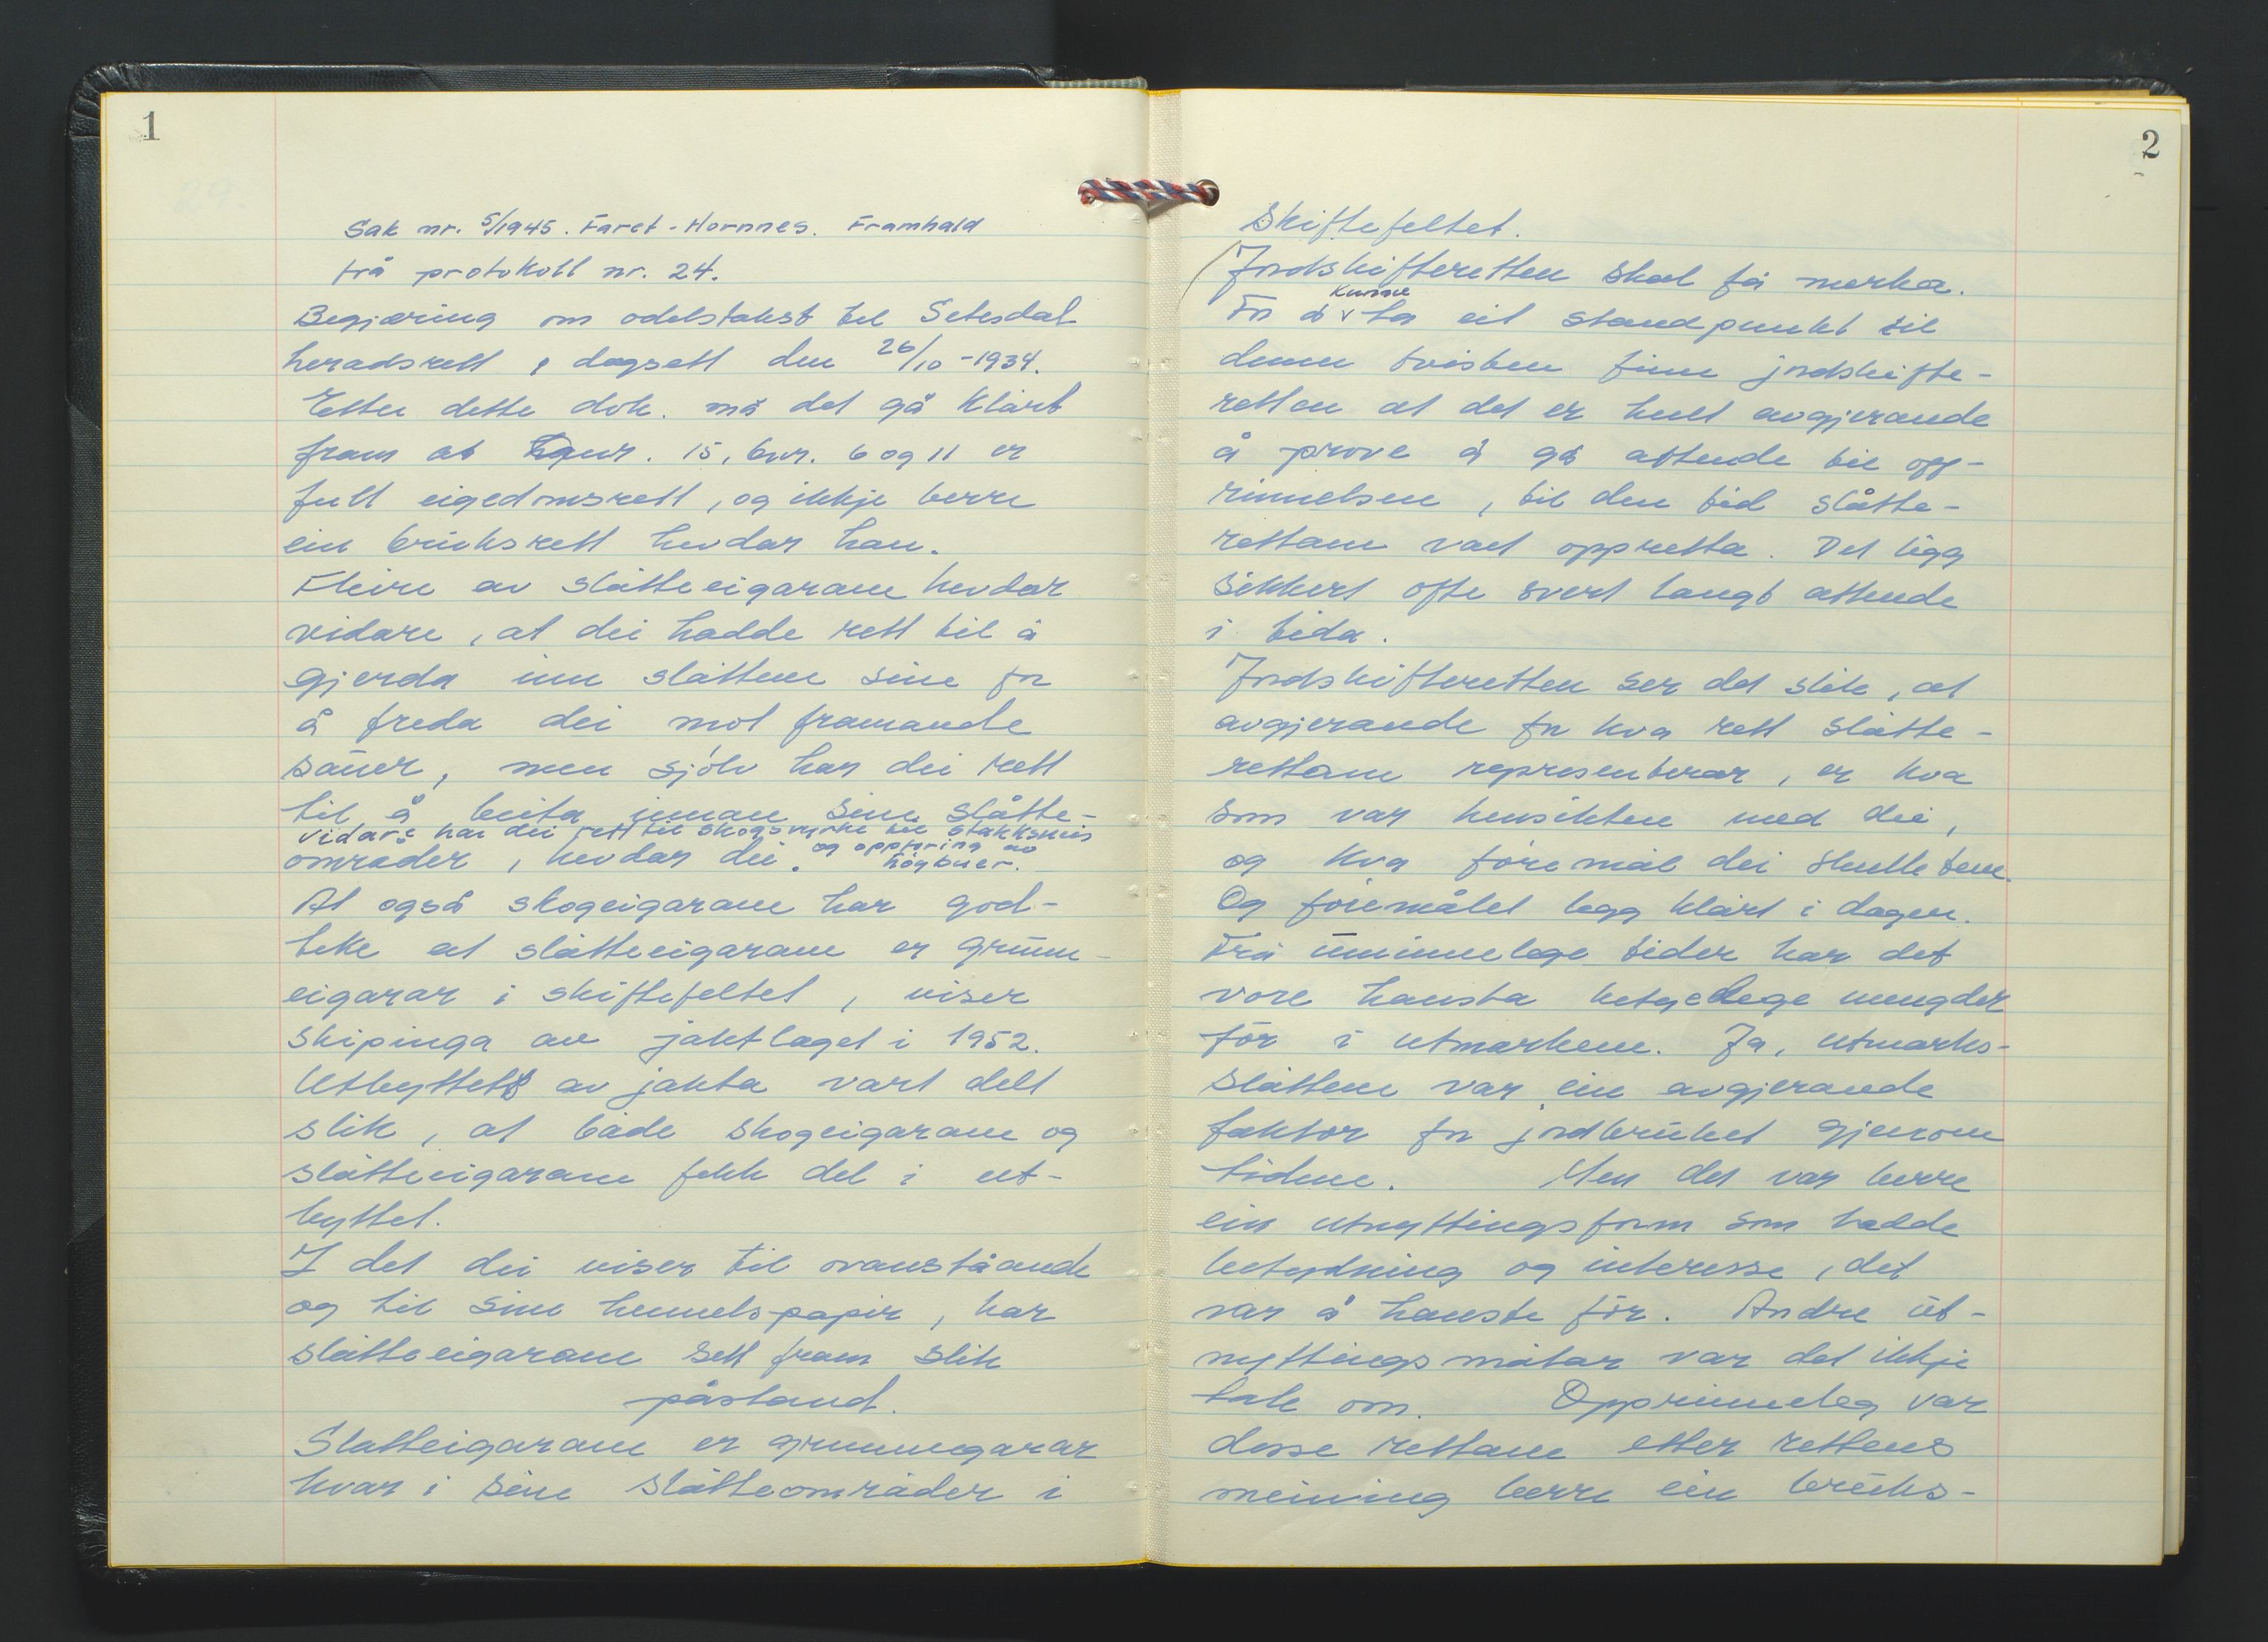 1
Sak nr. 5/1945. Faret - Hornnes. Framhald
frå protokoll nr. 24.
Begjæring om odelstakst til Setesdal
heradsrett, dagsett den 26/10-1934.
Etter dette dok. må det gå klårt
fram at gnr. 15, bnr. 6 og 11 er
full eigedomsrett, og ikkje berre
ein bruksrett hevdar han.
Fleire av slåtteeigarane hevdar
vidare, at dei hadde rett til å
gjerda inn slåttene sine for
å freda dei mot framande
sauer, men sjølv har dei rett
til å beita innan sine slåtte-
vidare har dei rett til skogsvyrke til stakksneis
områder, hevdar dei. og oppføring av
høybuer.
At også skogeigarane har god-
teke at slåtteeigarane er grunn-
eigarar i skiftefeltet, viser
skipinga av jaktlaget i 1952.
Utbyttet av jakta vart delt
slik, at både skogeigarane og
slåtteeigarane fekk del i ut-
byttet.
I det dei viser til ovanståande
og til sine heimelspapir, har
slåtteeigarane sett fram slik
påstand.
Slåtteigarane er grunneigarar
kvar i sine slåtteområder i
2
Skiftefeltet.
Jordskifteretten skal få merka.
For å kunne ta eit standpunkt til
denne tvisten finn jordskifte-
retten at det er heilt avgjerande
å prøve å gå attende til opp-
rinnelsen, til den tid slåtte-
rettane vart oppretta. Det ligg
sikkert ofte svert langt attende
i tida.
Jordskifteretten ser det slik, at
avgjerande for kva rett slåtte-
rettane representerar, er kva
som var hensikten med dei,
og kva føremål dei skulle tene.
Og føremålet legg klårt i dagen.
Frå uminnelege tider har det
vore hausta betydelege mengder
fôr i utmarkene. Ja, utmarks-
slåttene var ein avgjerande
faktor for jordbruket gjenom
tidene. Men det var berre
ein utnyttingsform som hadde
betydning og interesse, det
var å hauste fôr. Andre ut-
nyttingsmåtar var det ikkje
tale om. Opprinneleg var
desse rettane etter rettens
meining berre ein bruks-